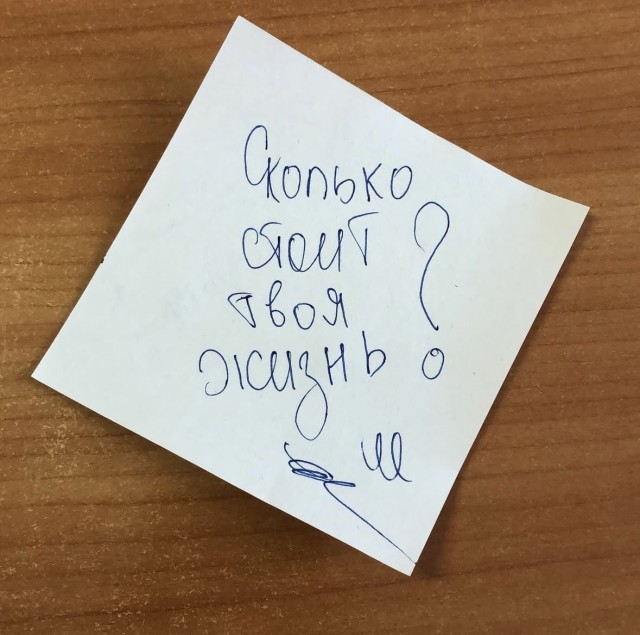 Сколько
стоит
твоя
жизнь?
Ш